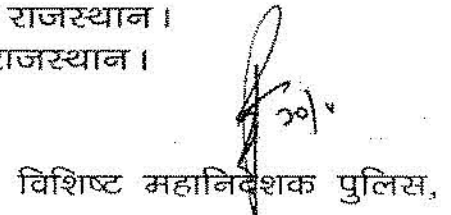 राजस्थान।
राजस्थान।
विशिष्ट महानिदेशक पुलिस,